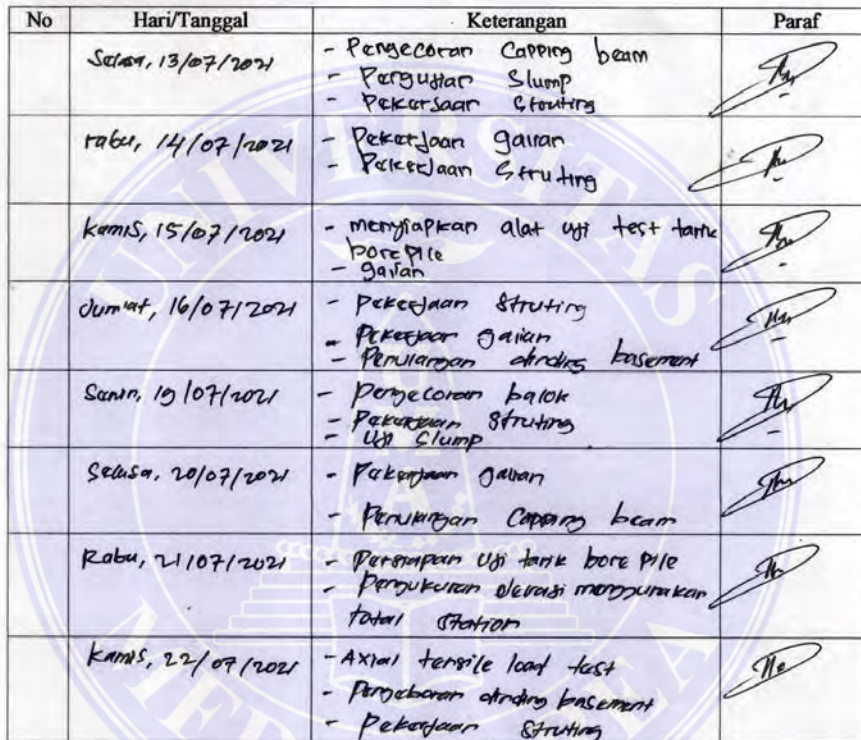 No Hari/Tanggal Keterangan Paraf
Selasa, 13/07/2021 - Pengecoran Capping beam
- Pengujian Slump
- Pekerjaan Struting
rabu, 14/07/2021 - Pekerjaan galian
- Pekerjaan Struting
kamis, 15/07/2021 - menyiapkan alat uji test tarik
bore pile
- galian
Jum'at, 16/07/2021 - Pekerjaan Struting
- Pekerjaan galian
- Penulangan dinding basement
Senin, 19/07/2021 - Pengecoran balok
- Pekerjaan Struting
- Uji Slump
Selasa, 20/07/2021 - Pekerjaan galian
- Penulangan Capping beam
Rabu, 21/07/2021 - Persiapan uji tarik bore pile
- Pengukuran elevasi menggunakan
total station
Kamis, 22/07/2021 - Axial tensile load test
- Pengeboran dinding basement
- Pekerjaan Struting
UNIVERSITAS
MEDAN AREA